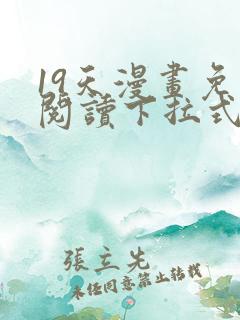 19天漫畫免
閱讀下拉式
張立先
未經同意禁止轉載